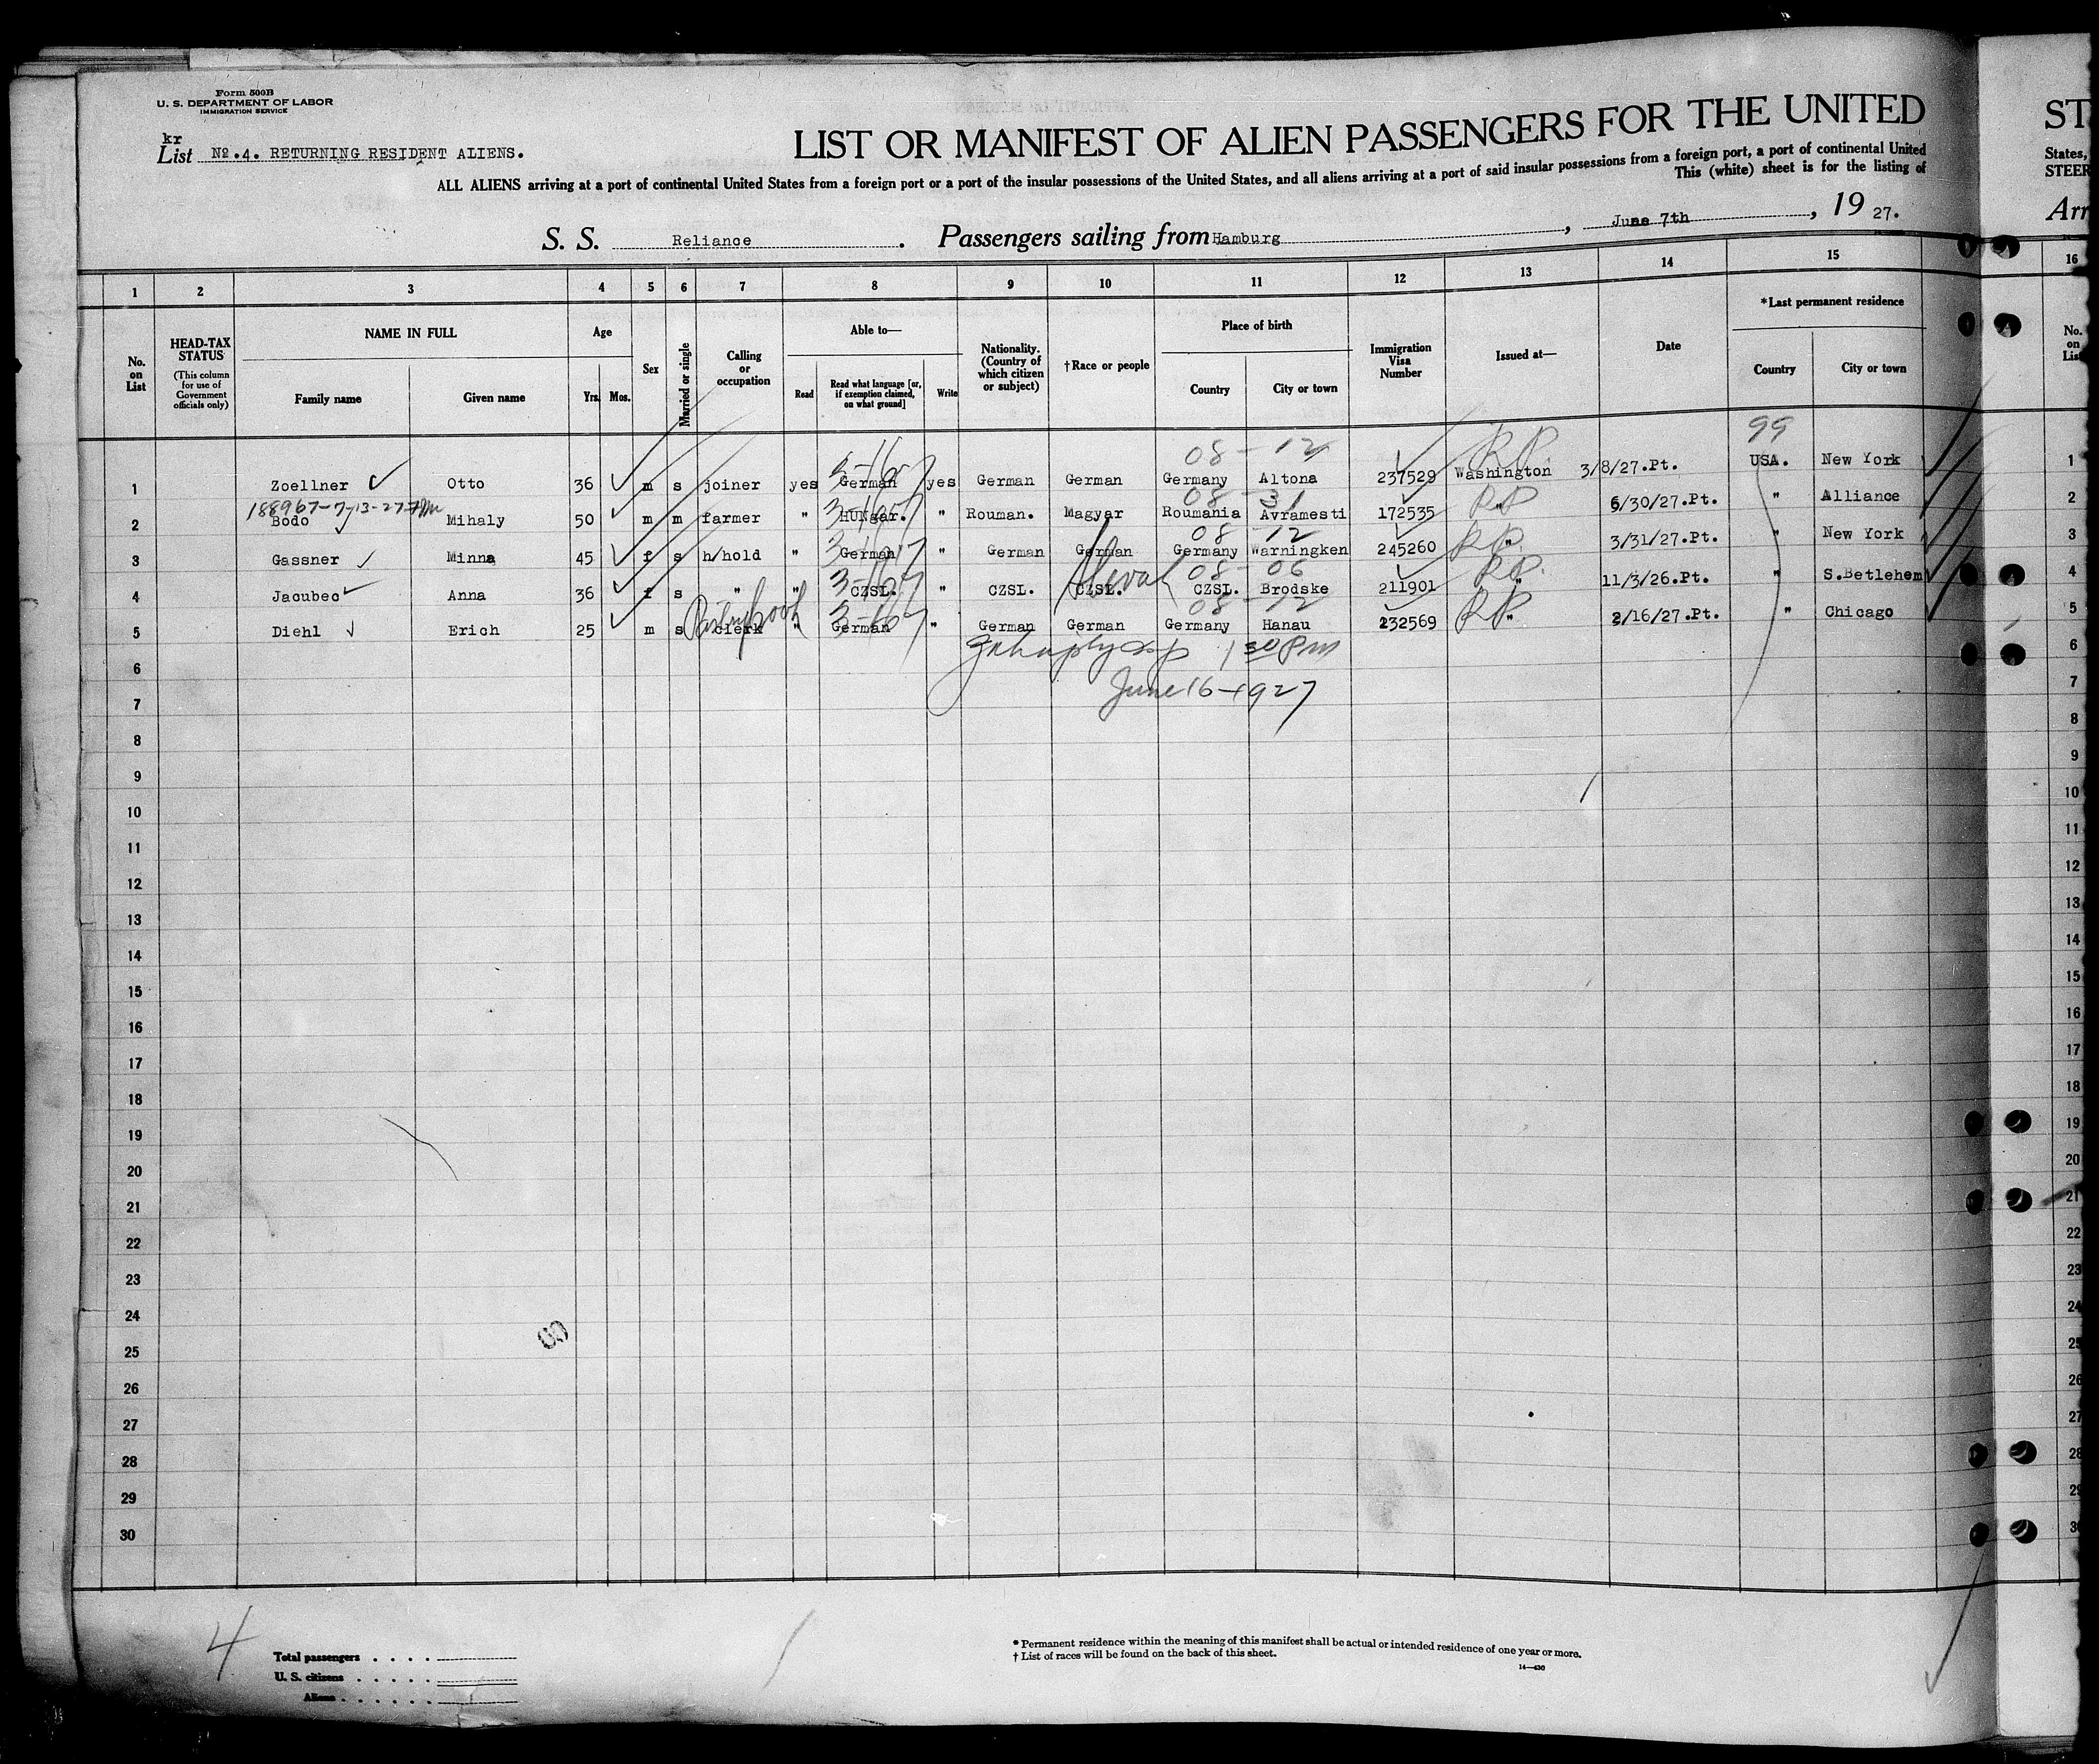 Form 500B
U. S. DEPARTMENT OF LABOR
IMMIGRATION SERVICE
kr
List No.4. RETURNING RESIDENT ALIENS.
LIST OR MANIFEST OF ALIEN PASSENGERS FOR THE UNITED
ST
ALL ALIENS arriving at a port of continental United States from a foreign port or a port of the insular possessions of the United States, and all aliens arriving at a port of said insular possessions from a foreign port, a port of continental United
States,
This (white) sheet is for the listing of
STEER
S. S. Reliance. Passengers sailing from Hamburg, June 7th, 19 27.
Arr
1 2 3 4 5 6 7 8 9 10 11 12 13 14 15 16
No. on List
HEAD-TAX STATUS
(This column for use of Government officials only)
NAME IN FULL
Family name Given name
Age
Yrs. Mos.
Sex
Married or single
Calling or occupation
Able to—
Read
Read what language [or, if exemption claimed, on what ground]
Write
Nationality. (Country of which citizen or subject)
†Race or people
Place of birth
Country City or town
Immigration Visa Number
Issued at—
Date
*Last permanent residence
Country City or town
No. on List
99
08-12 RP
1 Zoellner Otto 36 m s joiner yes German yes German German Germany Altona 237529 Washington 3/8/27.Pt. USA. New York 1
188967-7-13-27
08-31 RP
2 Bodo Mihaly 50 m m farmer " HUngar. " Rouman. Magyar Roumania Avramesti 172535 " 5/30/27.Pt. " Alliance 2
08-12 RP
3 Gassner Minna 45 f s h/hold " German " German German Germany Warningken 245260 " 3/31/27.Pt. " New York 3
08-06 RP
4 Jacubec Anna 36 f s " " CZSL. " CZSL. CZSL. CZSL. Brodske 211901 " 11/3/26.Pt. " S.Betlehem 4
08-12 RP
5 Diehl Erich 25 m s clerk " German " German German Germany Hanau 232569 " 2/16/27.Pt. " Chicago 5
1 30 Pm
June 16-1927
6 6
7 7
8 8
9 9
10 10
11 11
12 12
13 13
14 14
15 15
16 16
17 17
18 18
19 19
20 20
21 21
22 22
23 23
24 24
25 25
26 26
27 27
28 28
29 29
30 30
4
Total passengers . . . .
U. S. citizens . . . . . .
Aliens . . . . . .
* Permanent residence within the meaning of this manifest shall be actual or intended residence of one year or more.
† List of races will be found on the back of this sheet.
14—430